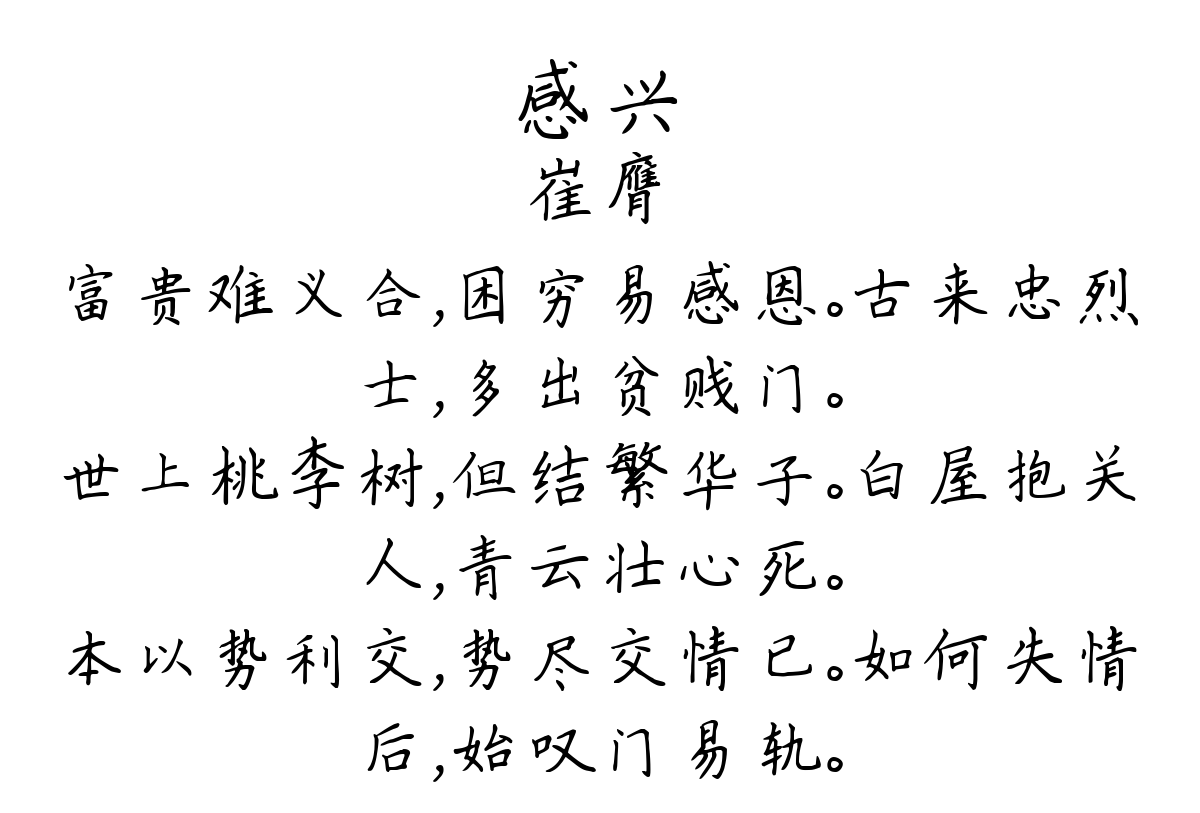 感兴
崔膺
富贵难义合,困穷易感恩。古来忠烈
士,多出贫贱门。
世上桃李树,但结繁华子。白屋抱关
人,青云壮心死。
本以势利交,势尽交情已。如何失情
后,始叹门易轨。